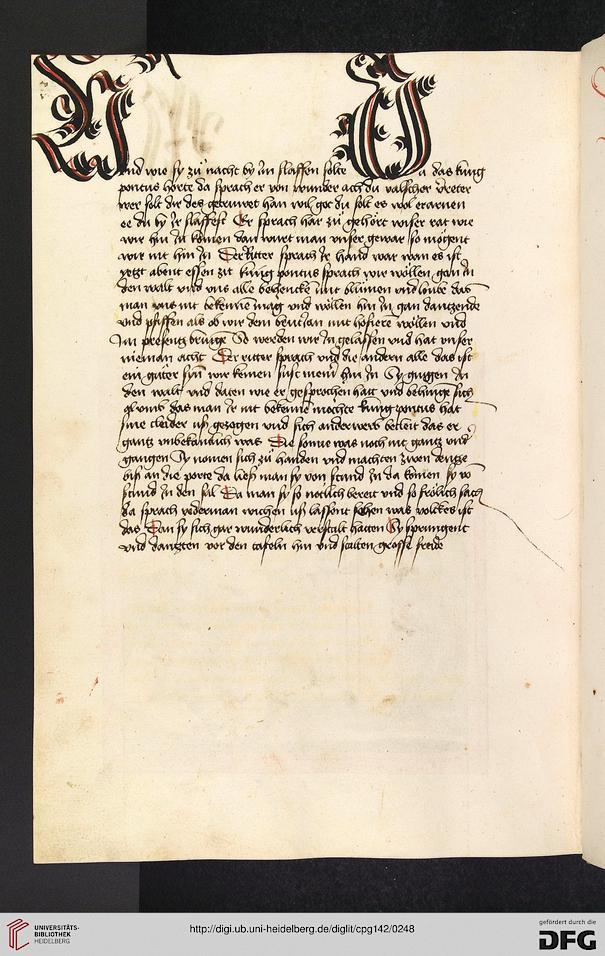 Vnd wie sy zü nacht by im slaffen solte Da das king
pontus horte da sprach er von wunder ach du valscher
wer solt dir des getruwet han wil got du solt es wol erarnen
ee du by ir slaffest Er sprach har zü gehört vnser rat wie
wir hin in komen dan wurt man vnser gewar so mögent
wir nit hin in Der Ritter sprach ir hand war wan es ist
yetzt abent essen zit king pontus sprach wir wöllen gan in
den walt vnd vns alle behencken mit blümen vnd das
man vns nit bekenne mag vnd wöllen hin in gan dantzende
vnd pfiffen als ob wir dem mit hofiere wöllen vnd
Im presentz bringe So werden wir in gelassen vnd hat vnser
nieman acht Der ritter sprach vnd die andern alle das ist
ein güter syn wir kemen sust niemer hin in Sy giengen in
den walt vnd daten wie er gesprochen hatt vnd behinge sich
das man ir nit bekenne mochte king pontus hat
sine cleider uß gezogen vnd sich anderwert becleit das er
gantz vnbekantlich was Die sonne was noch nit gantz vnd
gangen Sy nomen sich zü handen vnd machten zwen dentze
biß an die porte da ließ man sy von stund in da komen sy von
stund in den sal Da man sy so bereit vnd so frölich sach
da sprach yederman wichen uß lassent sehen was volckes ist
das Dan sy sich gar wunderlich verstalt hatten Sy sprungent
vnd dantzten vor den tafeln hin vnd grosse freide
UNIVERSITÄTS-
BIBLIOTHEK
HEIDELBERG
http://digi.ub.uni-heidelberg.de/diglit/cpg142/0248
gefördert durch die
DFG